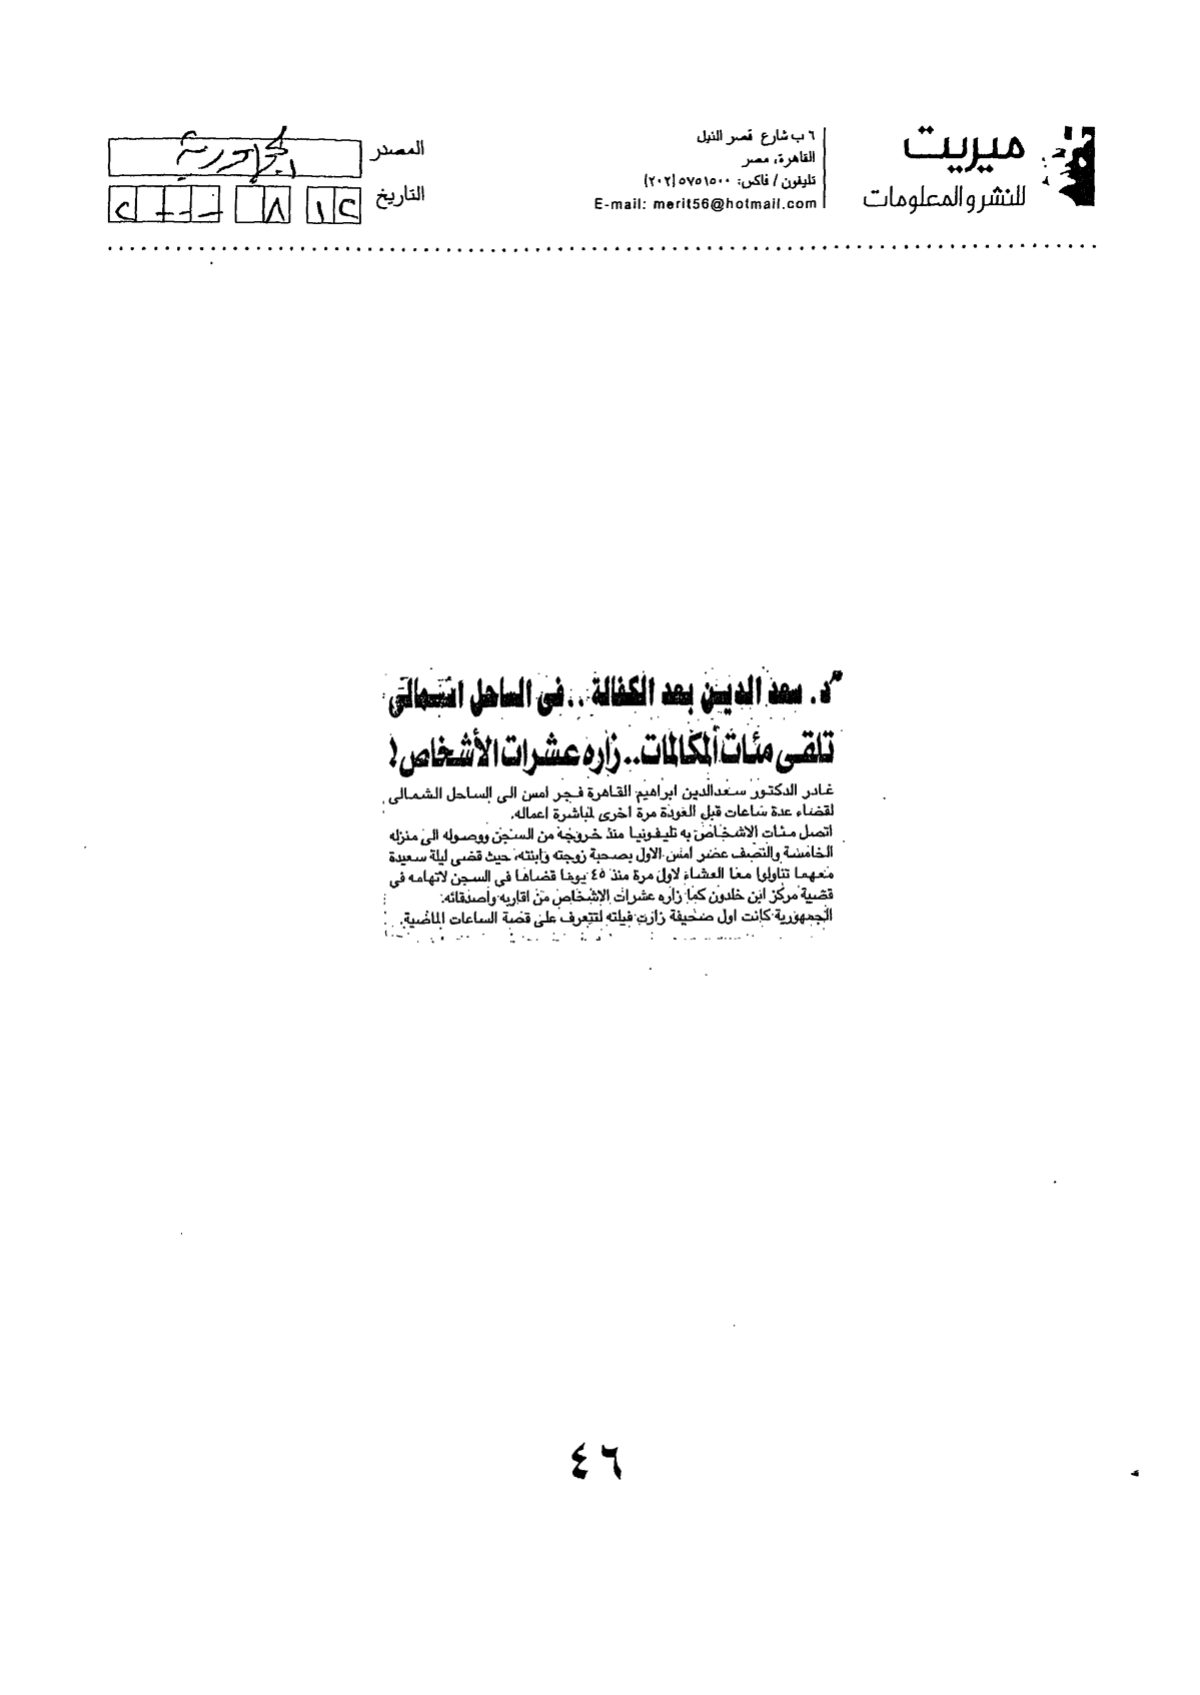 ميريت
للنشر والمعلومات
٦ ب شارع قصر النيل
القاهرة، مصر
تليفون / فاكس: ٥٧٥١٥٠٠ (٢٠٢)
E-mail: merit56@hotmail.com
المصدر
الجمهورية
التاريخ
١٢ ٨ ٢٠٠٠
د. سعد الدين بعد الكفالة.. فى الساحل الشمالى
تلقى مئات المكالمات.. زاره عشرات الأشخاص!
غادر الدكتور سعدالدين ابراهيم القاهرة فجر امس الى الساحل الشمالى
لقضاء عدة ساعات قبل العودة مرة اخرى لمباشرة اعماله.
اتصل مئات الاشخاص به تليفونيا منذ خروجه من السجن ووصوله الى منزله
الخامسة والنصف عصر امس الاول بصحبة زوجته وابنته، حيث قضى ليلة سعيدة
معهما تناولوا معا العشاء لاول مرة منذ ٤٥ يوما قضاها فى السجن لاتهامه فى
قضية مركز ابن خلدون كما زاره عشرات الاشخاص من اقاربه واصدقائه.
الجمهورية كانت اول صحيفة زارت فيلته لتتعرف على قصة الساعات الماضية.
٤٦